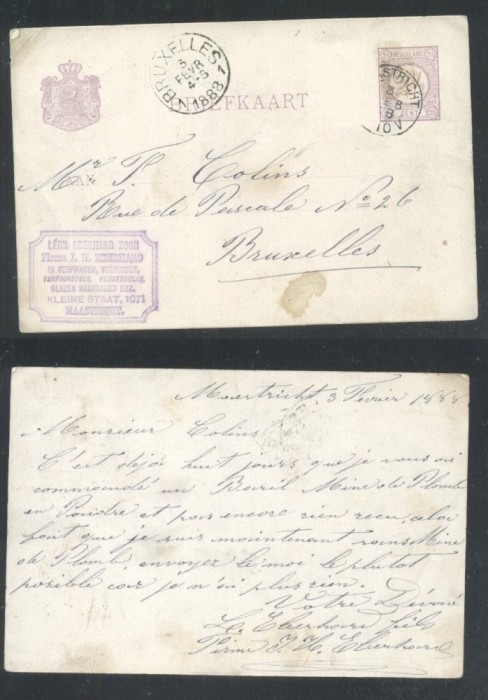 BRUXELLES 1
3
FEVR
4-5
1888
BRIEFKAART
NEDERLAND
CENT
AAN
Mr. P. Colins
Rue de Pascale No 26
Bruxelles
LÉON EBERHARD ZOON
Firma
KLEINE STAAT, 1071
MAASTRICHT.
Maestricht 3 Fevrier 1888
Monsieur Colins
C'est déjà huit jours que je vous ai
commandé un Baril Mine de Plomb
en Poudre et pas encore rien recu, cela
fait que je suis maintenant sans Mine
de Plomb envoyez le moi le plutot
posible car je n'ai plus rien.
Votre Dévoué
L. Eberhard fils
Firme J. H. Eberhard